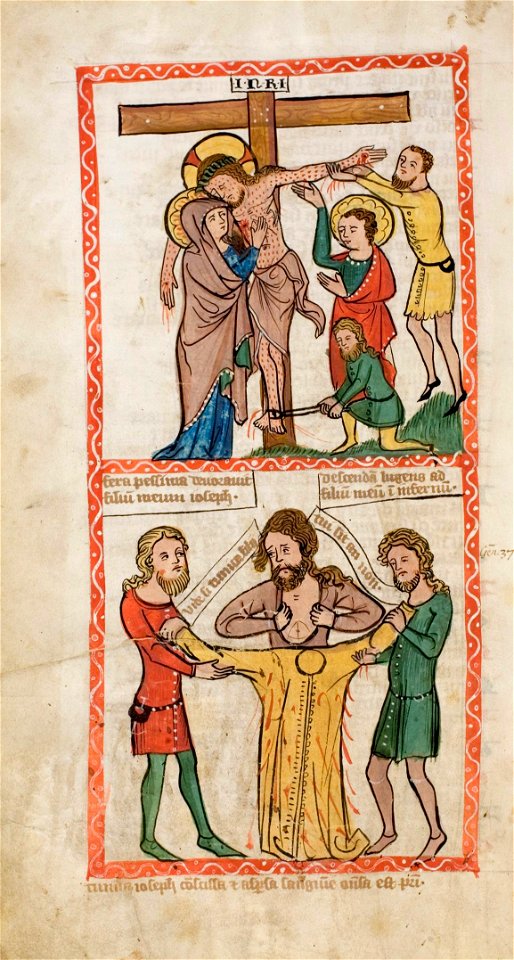 I·N·RI
fera pessima deuorauit
filiū meum ioseph·
descendā lugens ad
filiū meū ī infernū·
vide si tunica filii
tui sit an non·
Gen. 37
tunica ioseph cōscissa & aspsa sanguine oñsa est pr̄i·